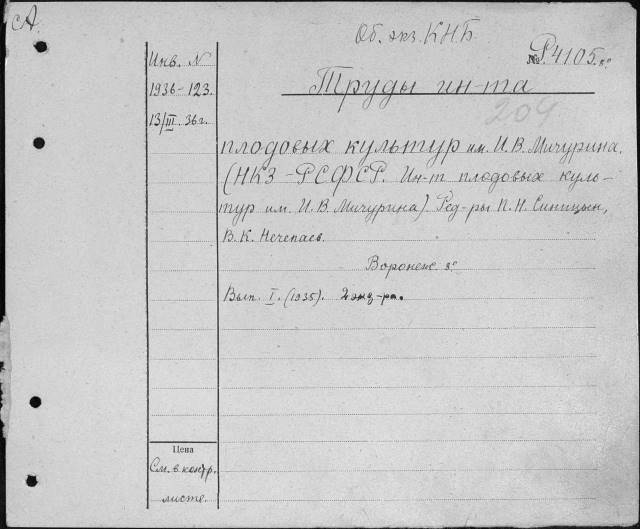 сА.
Об. экз. КНБ
Инв. N
№ Р4105.8°
1936-123.
Труды ин-та
204
13/III. 36г.
плодовых культур им. И.В. Мичурина.
(НКЗ-РСФСР. Ин-т плодовых куль-
тур им. И.В. Мичурина). Ред-ры П.Н. Синицын,
В.К. Нечепаев.
Воронеж 8°
Вып. I. (1935). 2 экз-ра.
Цена
См. в контр.
листе.